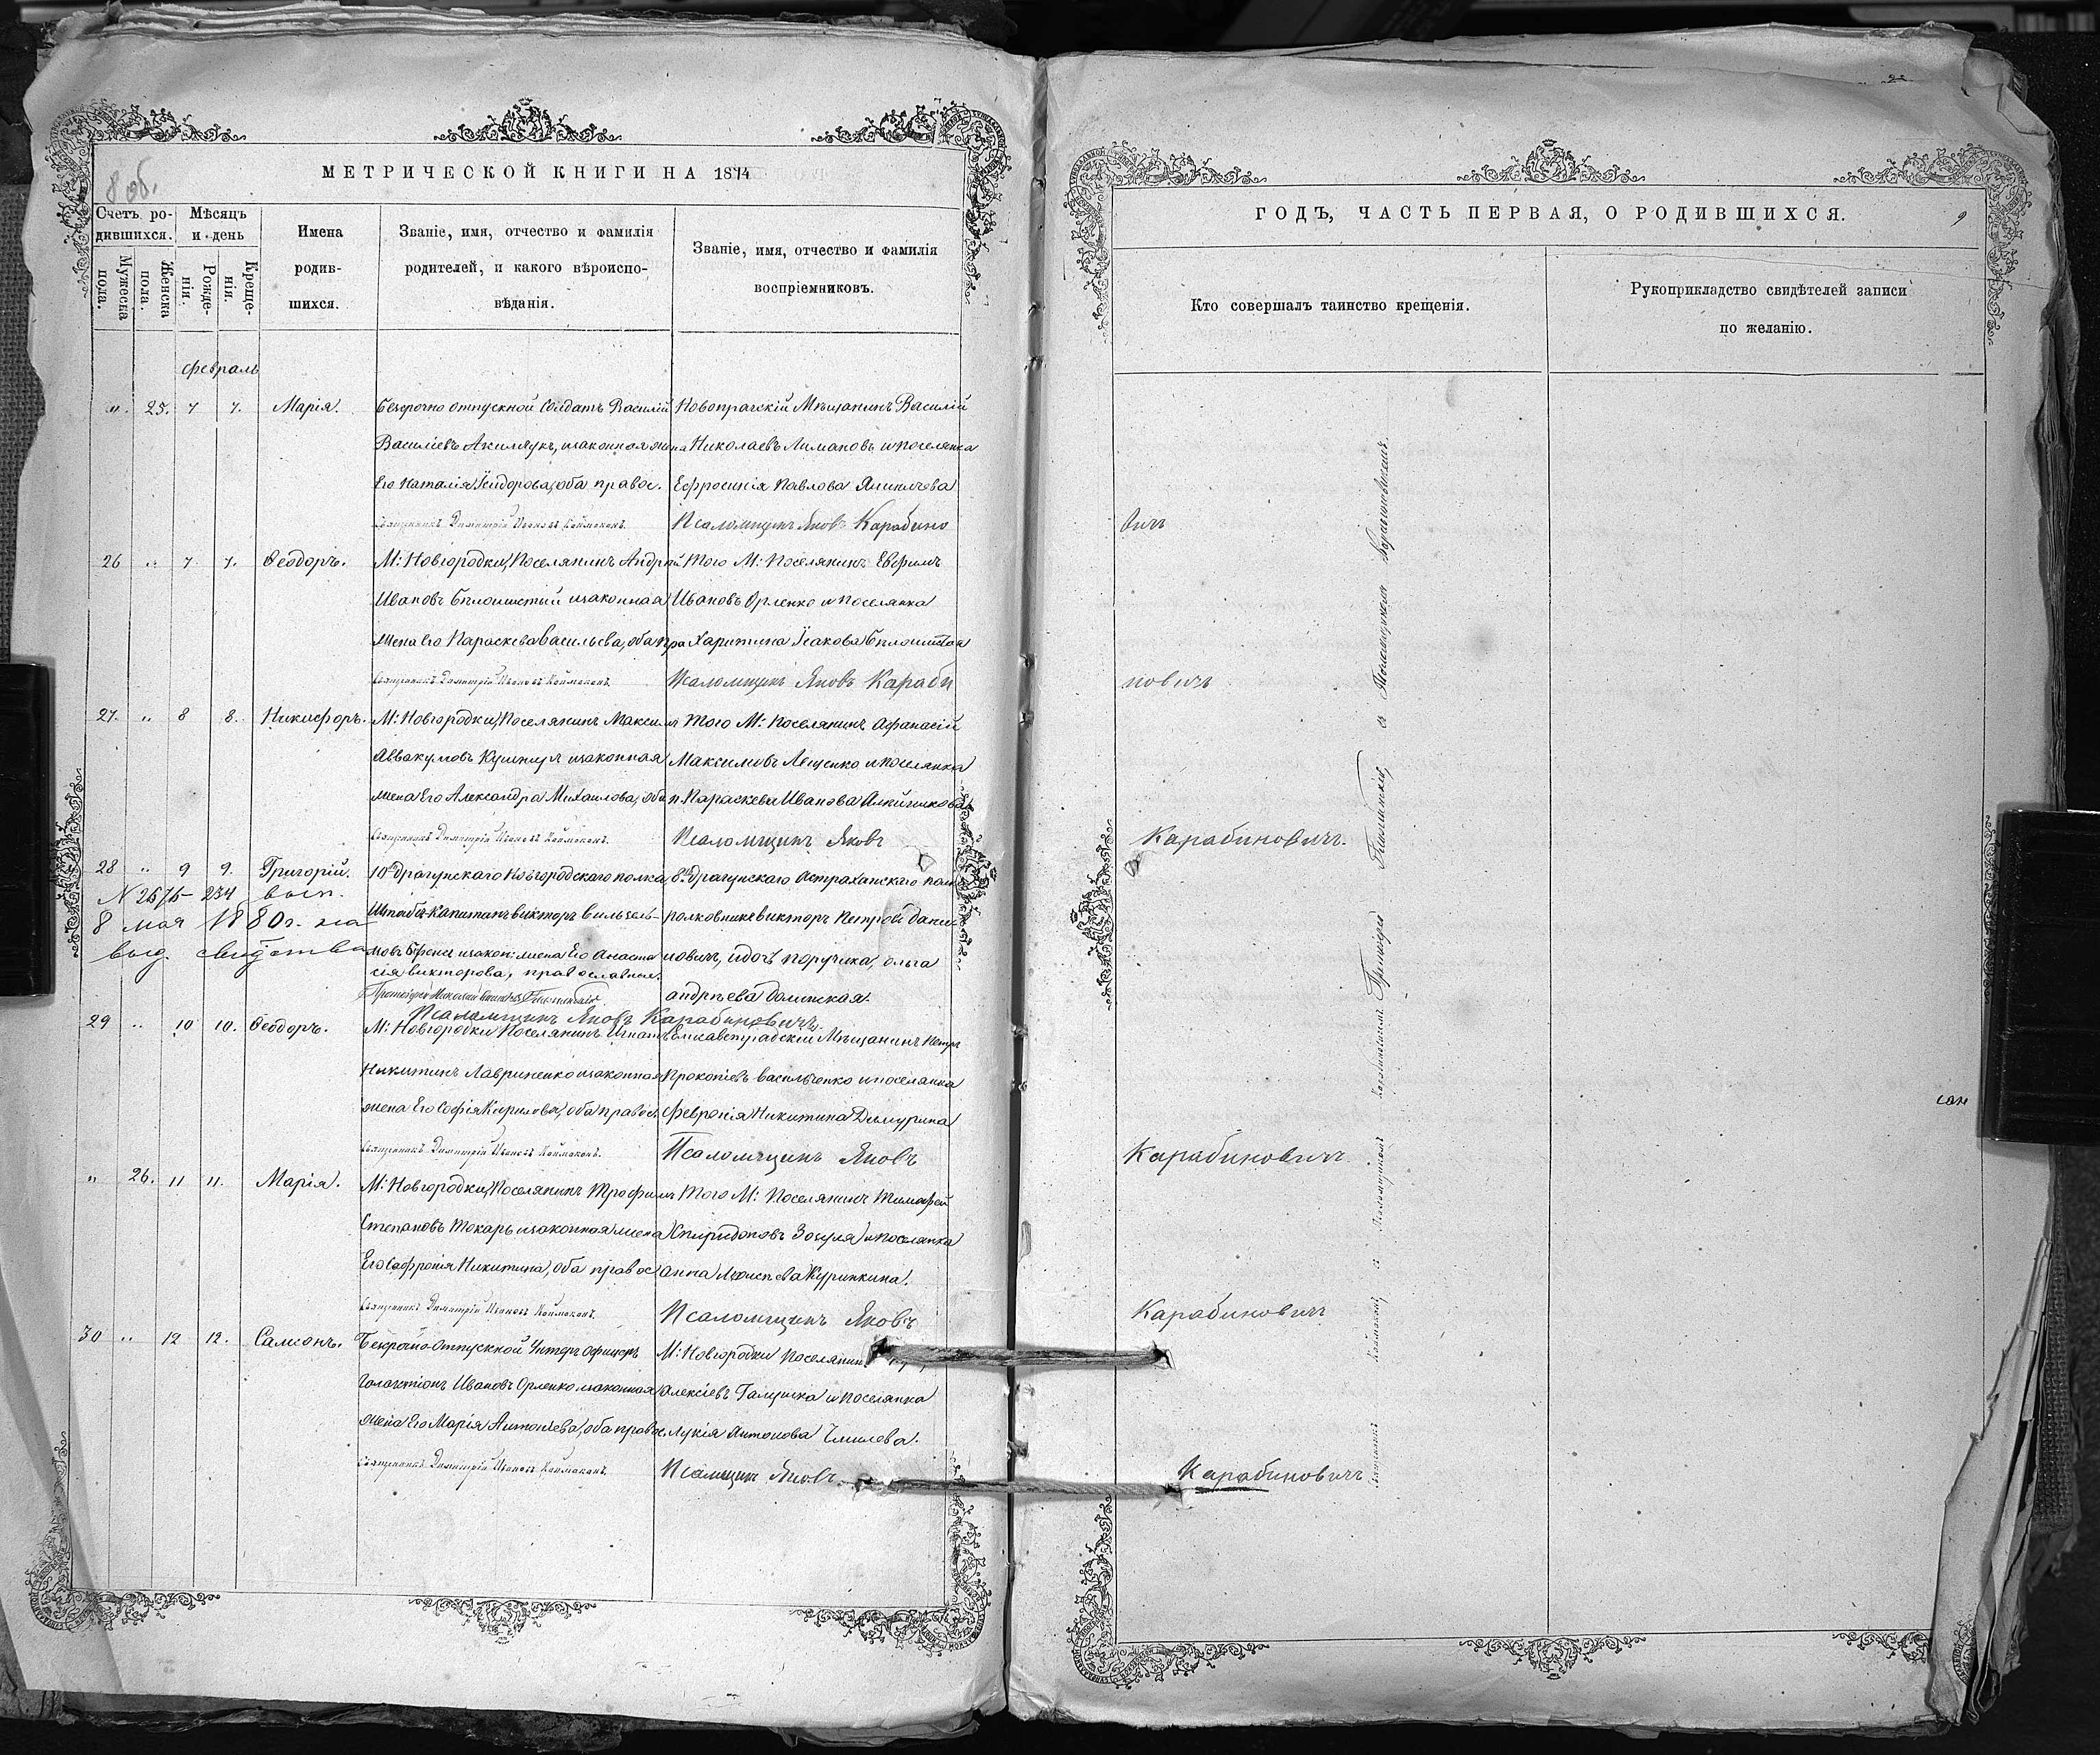 8 об.
МЕТРИЧЕСКОЙ КНИГИ НА 1874
Счетъ родившихся.
Мужеска пола.
Женска пола.
Мѣсяцъ и день
Рожденія.
Крещенія.
Имена родившихся.
Званіе, имя, отчество и фамилія
родителей, и какого вѣроиспо-
вѣданія.
Званіе, имя, отчество и фамилія
воспріемниковъ.
февраль
„ 25. 7 7. Марія.
Безсрочно отпускной Солдатъ Василій
Василіевъ, изаконная жена
Его Наталія Ісидорова, оба правос.
Священникъ Димитрій Ивановъ Каймаканъ.
Мѣщанинъ Василій
Николаевъ Лимановъ и поселянка
Ефросинія Павлова
Псаломщикъ Яковъ Карабино
26 „ 7 7. Ѳеодоръ.
М: Новгородки, Поселянинъ Андрей
Ивановъ изаконная
жена Его Параскева Васильева, оба пра
Священникъ Димитрій Ивановъ Каймаканъ.
Того М: Поселянинъ Евфимъ
Ивановъ Орленко и поселянка
Харитина Ісакова
Псаломщикъ Яковъ Караби
27. „ 8 8. Никифоръ.
М: Новгородки, Поселянинъ Максимъ
Аввакумовъ Кушниръ изаконная
жена Его Александра Михаилова, оба п.
Священникъ Димитрій Ивановъ Каймаканъ.
Того М: Поселянинъ Афанасій
Максимовъ Лещенко и поселянка
Параскева Иванова
Псаломщикъ Яковъ
28 „ 9 9. Григорій.
N 2675-234 вып.
8 мая 1880г. на
выд. свидѣтства
10го Драгунскаго Новгородскаго полка,
Штабсъ-Капитанъ Викторъ Вильгель-
мовъ изакон: жена Его Анаста
сія Викторова, православные.
Протоіерей Николай
8го Драгунскаго Астраханскаго пол
полковникъ Викторъ Петровъ Дани-
новичъ, идочь поручика, Ольга
Андрѣева Долинская.
Псаломщикъ Яковъ Карабиновичъ.
29 „ 10 10. Ѳеодоръ.
М: Новгородки Поселянинъ Игнатъ
Никитинъ Лавриненко изаконная
жена Его Софія Кирилова, оба правос.
Священникъ Димитрій Ивановъ Каймаканъ.
Елисаветградскій Мѣщанинъ Петръ
Прокопіевъ Васильченко и поселянка
Февронія Никитина Димурина
Псаломщикъ Яковъ
„ 26. 11 11. Марія.
М: Новгородки, Поселянинъ Трофимъ
Степановъ Токарь изаконная жена
Его Никитина, оба правос
Священникъ Димитрій Ивановъ Каймаканъ.
Того М: Поселянинъ Тимофей
Спиридоновъ Зозуля и поселянка
Анна Моисеева Куринкина.
Псаломщикъ Яковъ
30 „ 12 12. Самсонъ.
Безсрочно-Отпускной Унтеръ Офицеръ
Галактіонъ Ивановъ Орленко изаконная
жена Его Марія Антоніева, оба правос.
Священникъ Димитрій Ивановъ Каймаканъ.
М: Новгородки Поселянинъ
Алексіевъ и поселянка
Лукія Антонова
Псаломщикъ Яковъ
ГОДЪ, ЧАСТЬ ПЕРВАЯ, О РОДИВШИХСЯ.
9
Кто совершалъ таинство крещенія.
Рукоприкладство свидѣтелей записи
по желанію.
вичъ
новичъ
Карабиновичъ.
Карабиновичъ
Карабиновичъ
Карабиновичъ